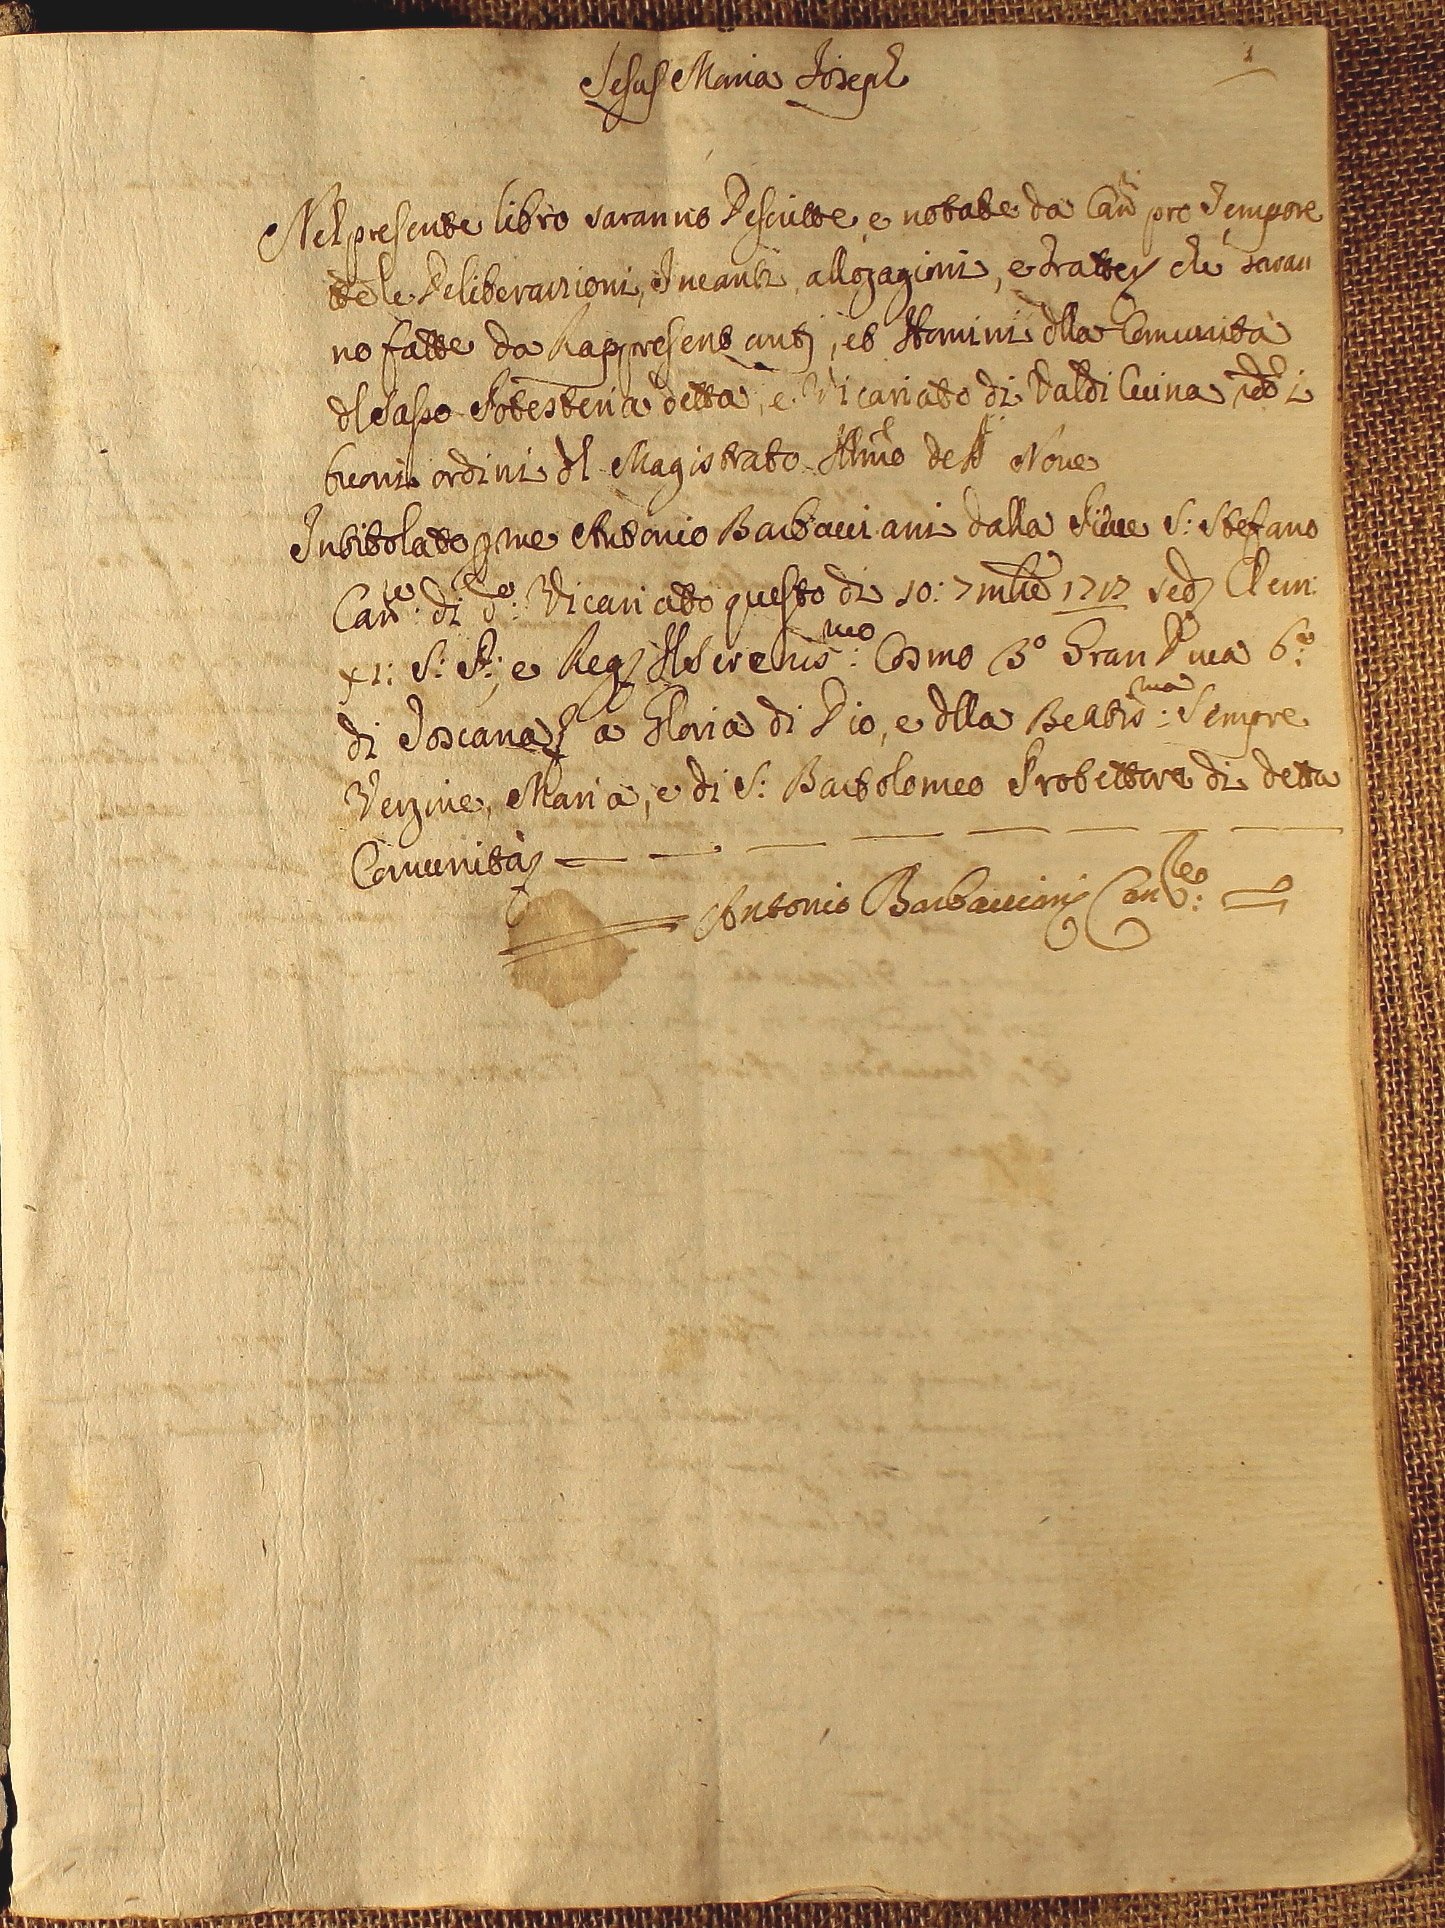 1
Jesus Maria Joseph
Nel presente libro saranno Descritte, e notate da Canri pro Tempore
tte le Deliberazioni, Incanti, allogagioni, e tratte che saran
no fatte da Rappresentanti, et Homini dlla Comunità
dl Sasso Potesteria detta, e Vicariato di Val di Cecina
buoni ordini dl Magistrato Illmo de SS Nove
Intitolato p me Antonio Barbacciani dalla Pieve S: Stefano
Canre: di do: Vicariato questo di 10: 7mbre 1717 sed Clem:
XI: S: P:, e Reg Il Serenismo: Cosmo 3º Gran Duca 6º:
di Toscana a Gloria di Dio, e dlla Beatisma: Sempre
Vergine, Maria, e di S: Bartolomeo Protettore di detta
Comunità
Antonio Barbacciani Canre: